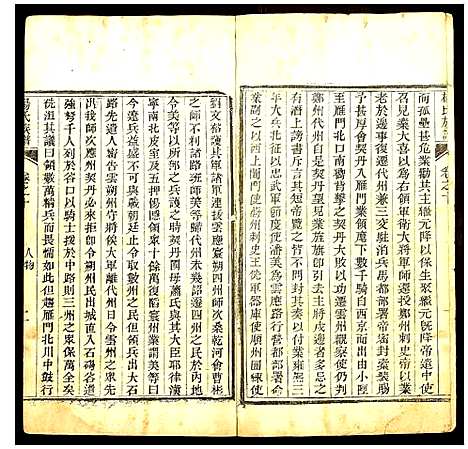 而孤壘甚危業勸其主繼元降以保生聚繼元旣降帝遣中使
召見業大喜以為右領軍衛大將軍師還授鄭州刺史帝以業
老於邊事復遷代州兼三交駐泊兵馬都部署帝密封橐裝賜
予甚厚會契丹入雁門業領麾下數千騎自西京而出由小陘
至雁門北口南嚮背擊之契丹大敗以功遷雲州觀察使仍判
鄭州代州自是契丹望見業旌旗卽引去主將戍邊者多忌之
有潛上謗書斥言其短帝覽之皆不問封其奏以付業雍熙三
年大兵北征以忠武軍節度使潘美為雲應路行營都部署命
業副之以西上閤門使蔚州刺史王侁軍器庫使順州團練使
劉文裕護其軍諸軍連拔雲應寰朔四州師次桑乾河會曹彬
之師不利諸路班師美等歸代州未幾詔遷四州之民於內地
令美等以所部之兵護之時契丹國母蕭氏與其大臣耶律漢
寧南北皮室及五押惕隱領眾十餘萬復陷寰州業謂美等曰
今遼兵益盛不可與戰朝廷止令取數州之民但領兵出大石
路先遣人密告雲朔州守將俟大軍離代州日令雲州之眾先
出我師次應州契丹必來拒卽令朔州民出城直入石碣谷遣
強弩千人列於谷口以騎士援於中路則三州之眾保萬全矣
侁沮其議曰領數萬精兵而畏懦如此但趨雁門北川中鼓行
楊氏族譜
人物